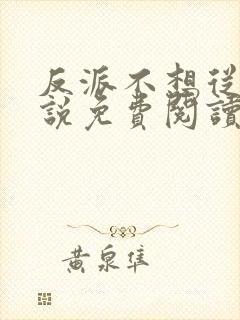 反派不想從
說免費閱讀
黃泉隼